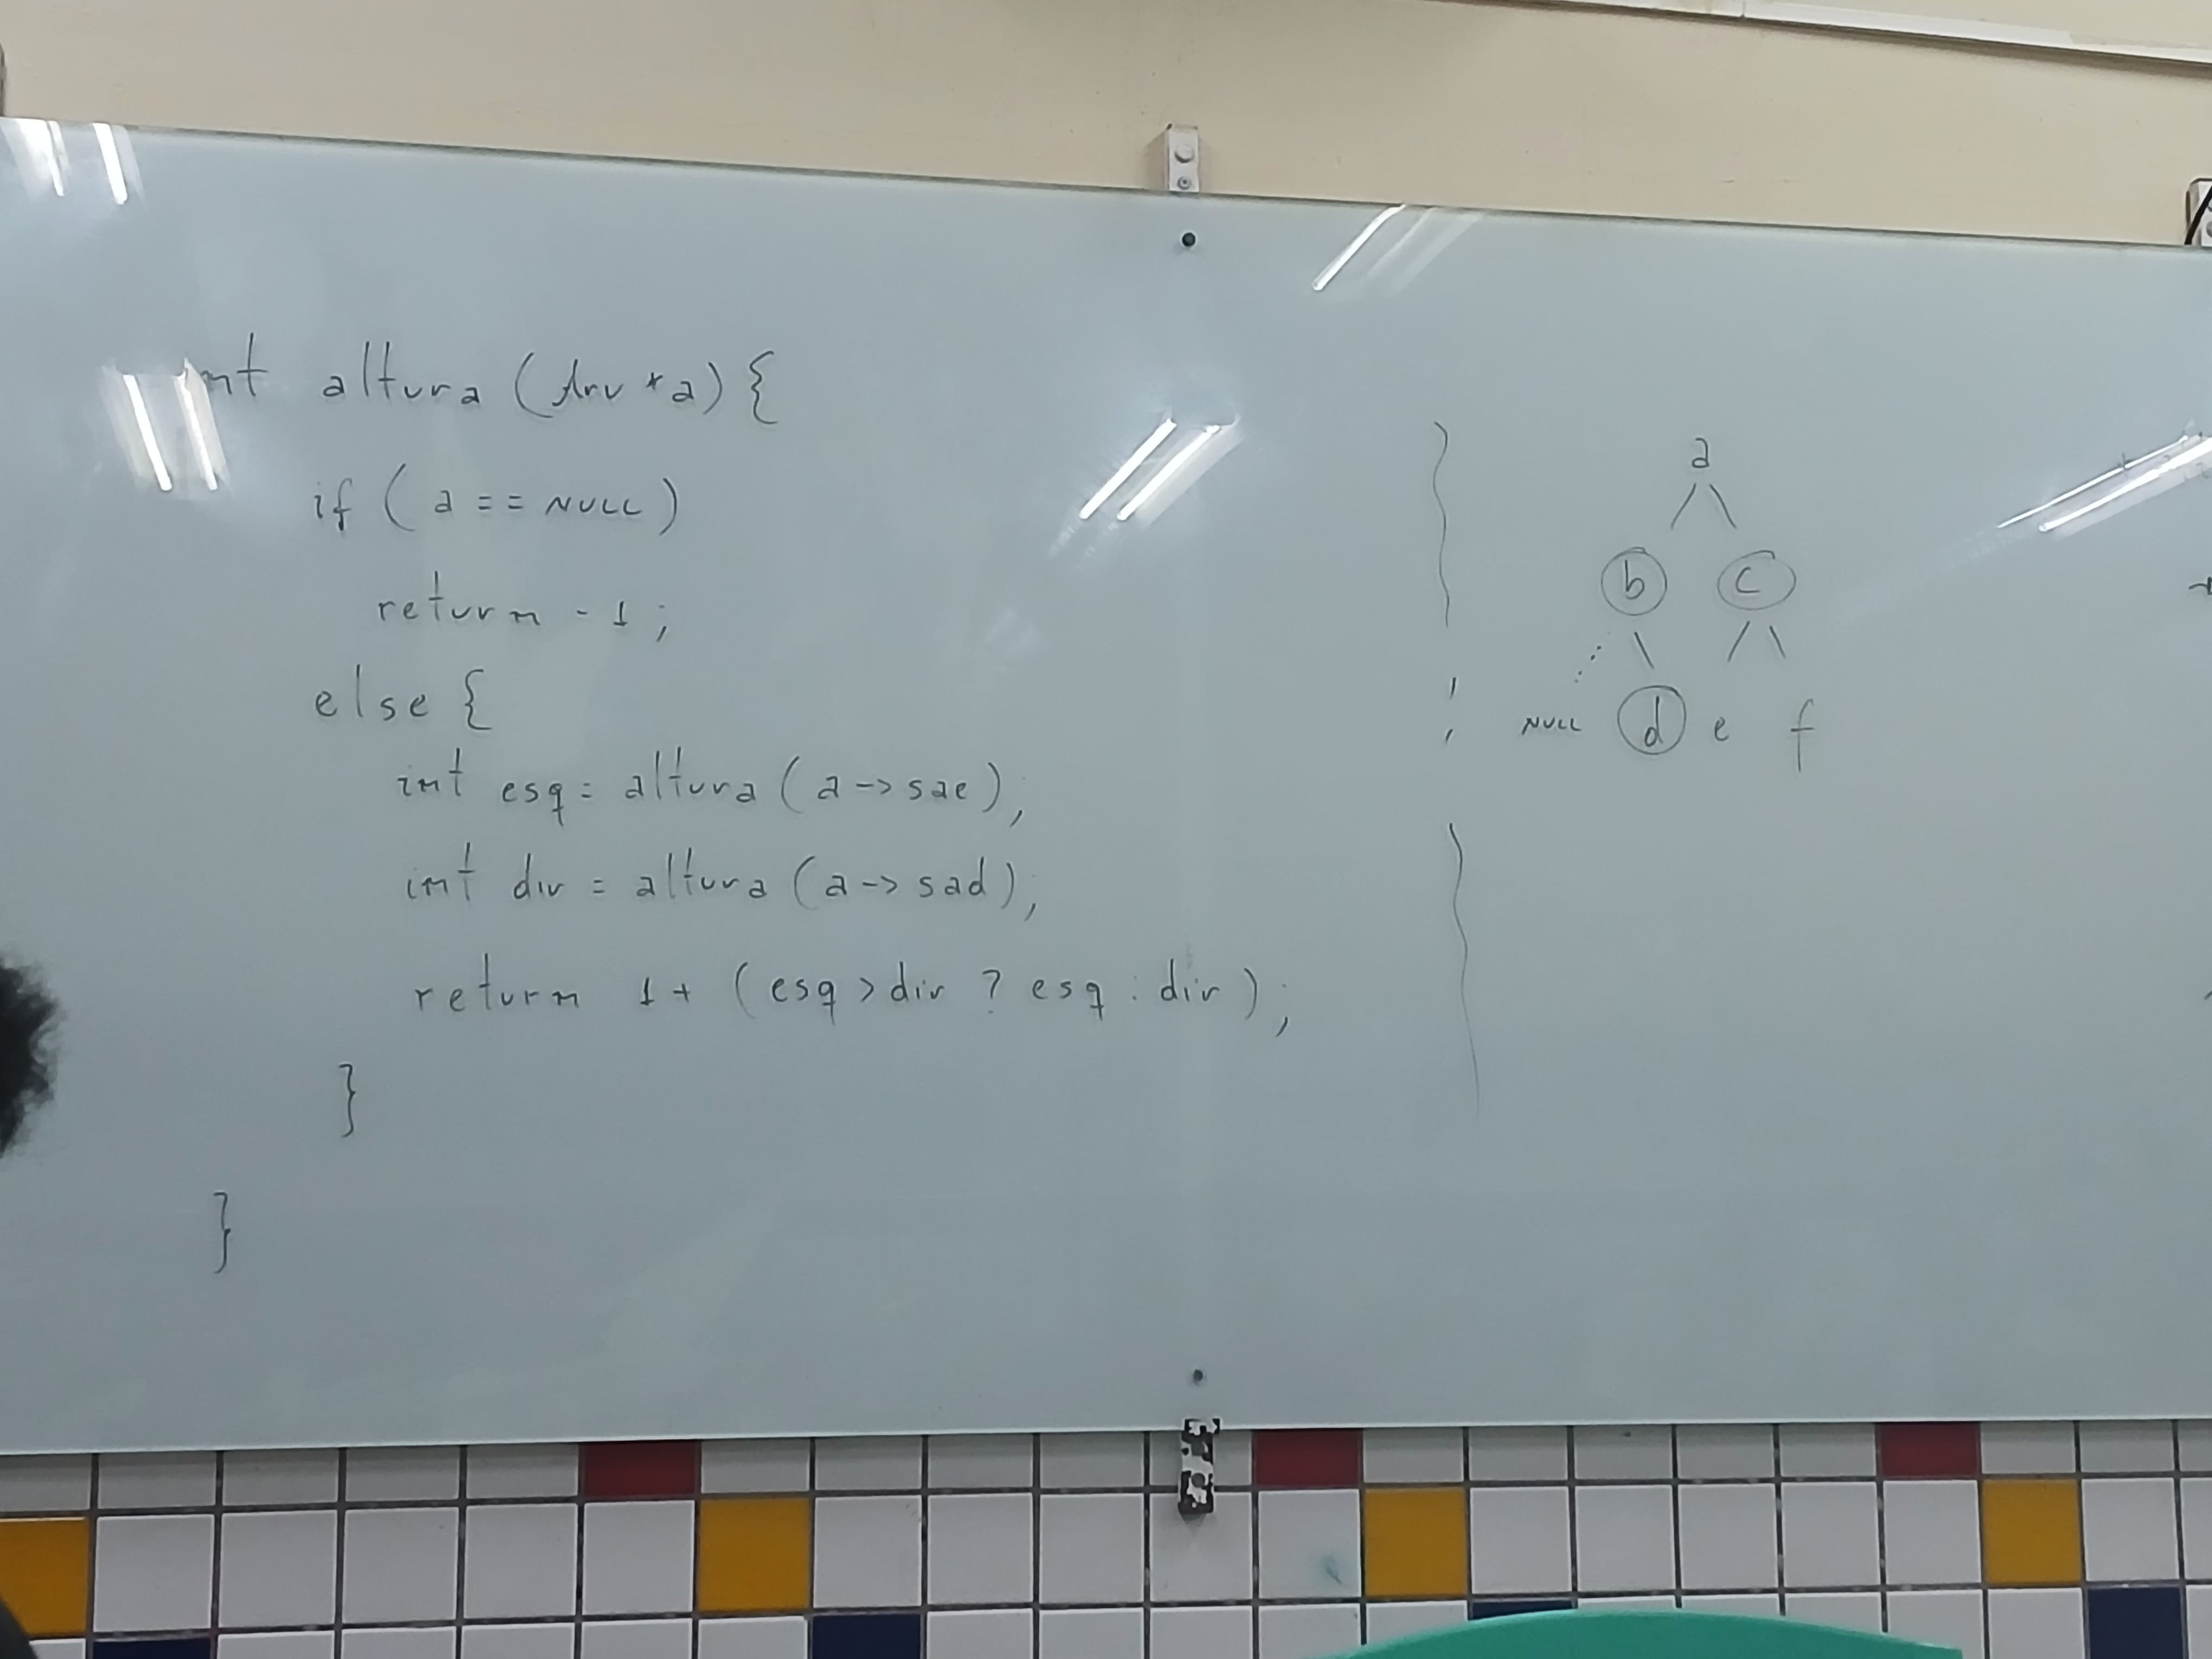 int altura (Arv *a) {
if (a == NULL)
return -1;
else {
int esq = altura (a -> sae);
int dir = altura (a -> sad);
return 1 + (esq > dir ? esq : dir);
}
}
a
b c
NULL d e f